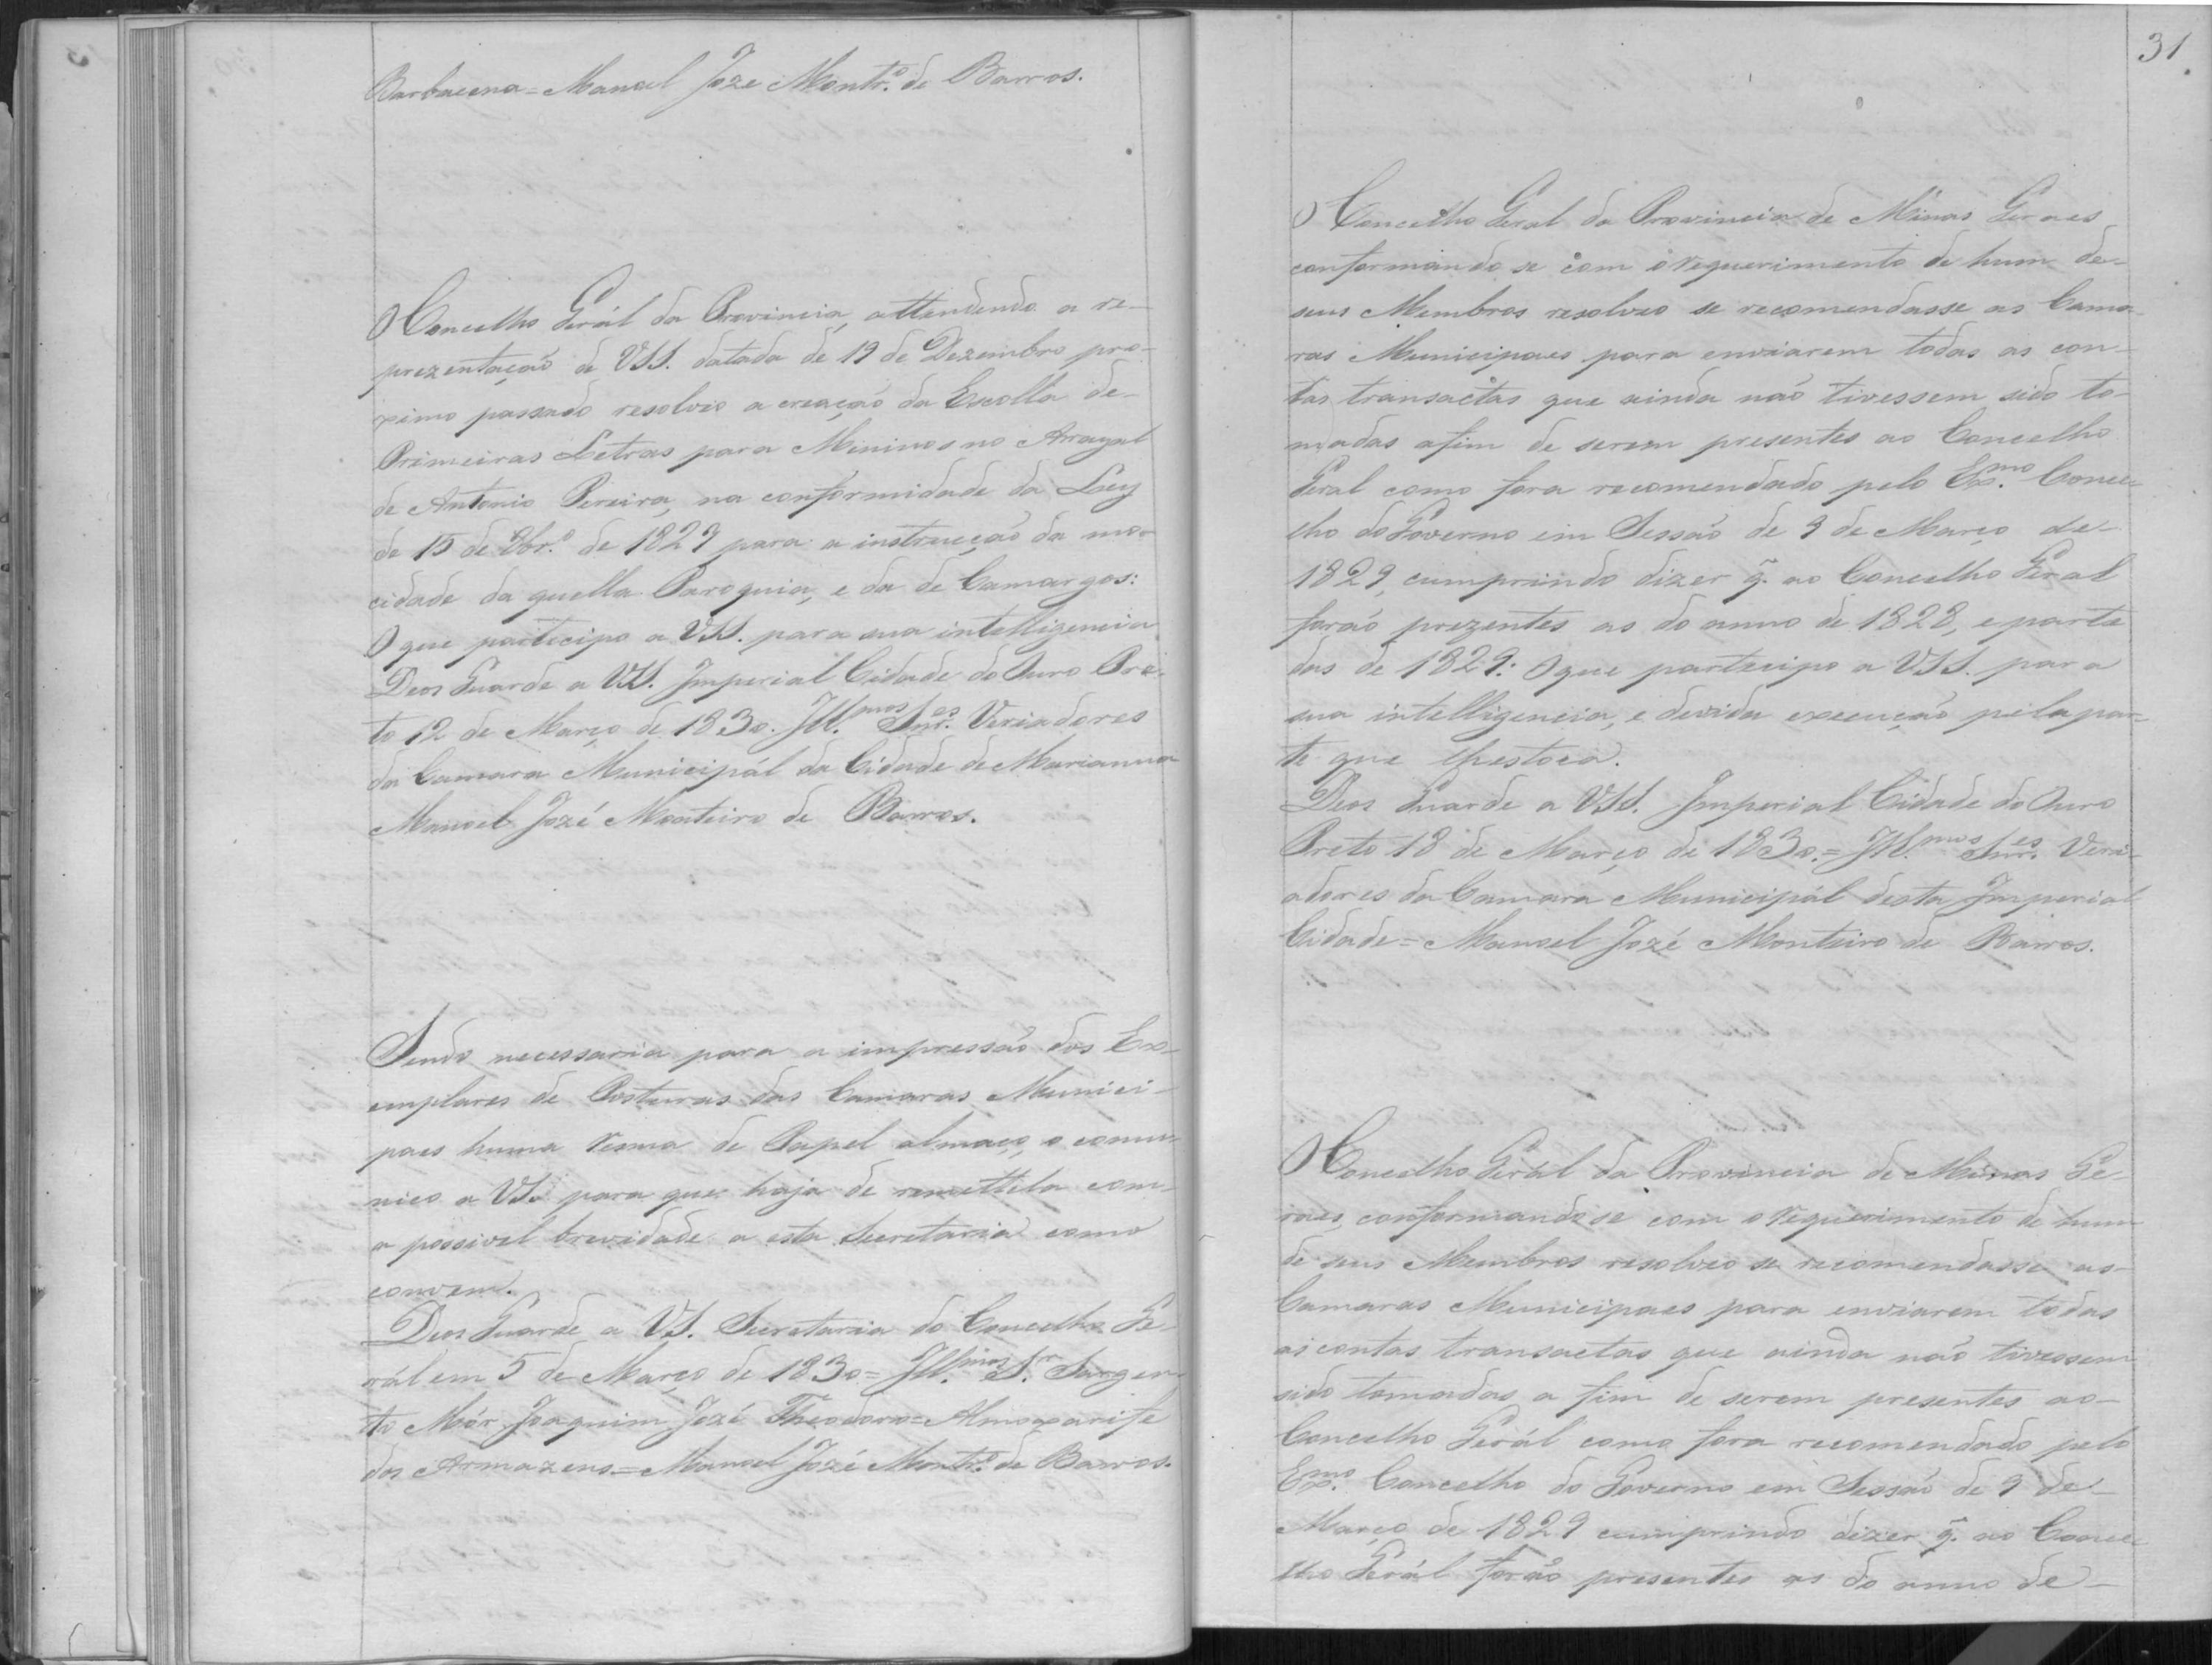 Barbacena = Manoel Joze Montr.º de Barros.
O Concelho Gerál da Provincia, attendendo a re-
prezentação de VSS. datada de 19 de Dezembro pro-
ximo passado resolveo a creação da Escolla de-
Primeiras Letras para Mininos no Arrayal
de Antonio Pereira, na conformidade da Ley
de 15 de 8br.º de 1827 para a instrucção da mo-
cidade da quella Paroquia, e da de Camargos:
O que participo a VSS. para sua intelligencia
Deos Guarde a VSS. Imperial Cidade do Ouro Pre-
to 12 de Março de 1830. Ill.mos Snr.es Veriadores
da Camara Municipál da Cidade de Marianna
Manoel Jozé Monteiro de Barros.
Sendo necessaria para a impressão dos Ex-
emplares de Posturas das Camaras Munici-
paes huma resma de Papel almaço, o comm-
nico a VS. para que haja de remettela com-
a possivel brevidade a esta Secretaria como
convem.
Deos Guarde a VS. Secretaria do Concelho Ge-
rál em 5 de Março de 1830 = Ill.mos Sr. Sargen-
to Mór Joaquim Jozé Theodoro = Almoxarife
dos Armazens = Manoel Jozé Montr.º de Barros.
31
O Concelho Geral da Provincia de Minas Geraes
conformando se com o requerimento de hum de-
seus Membros resolveo se recomendasse as Cama-
ras Municipaes para enviarem todas as con-
tas transactas que ainda não tivessem sido to-
madas afim de serem presentes ao Concelho
Geral como fora recomendado pelo Ex.mo Conce-
lho do Governo em Sessão de 9 de Março de-
1829, cumprindo dizer q̃. ao Concelho Geral
forão prezentes as do anno de 1828, e parte
das de 1829: O que participo a VSS. para
sua intelligencia, e devida execução pela par-
te que lhestoca.
Deos Guarde a VSS. Imperial Cidade do Ouro
Preto 18 de Março de 1830. = Ill.mos Snr.es Veri-
adores da Camara Municipál desta Imperial
Cidade = Manoel Jozé Monteiro de Barros.
O Concelho Gerál da Provincia de Minas Ge-
raes, conformando se com o requerimento de hum
de seus Membros resolveo se recomendasse as-
Camaras Municipaes para enviarem todas
as contas transactas que ainda não tivessem
sido tomadas, a fim de serem presentes ao-
Concelho Gerál como fora recomendado pelo
Ex.mo Concelho do Governo em Sessão de 9 de-
Março de 1829 cumprindo dizer q̃. ao Conce-
lho Gerál forão presentes as do anno de-